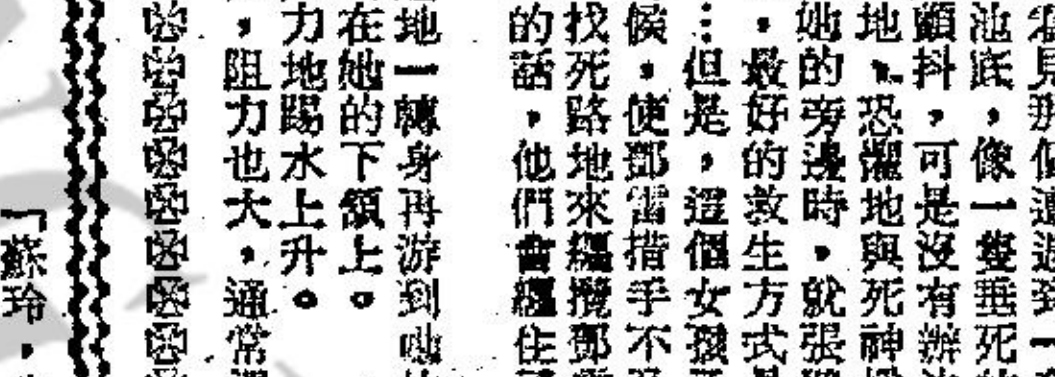 池底,像一隻垂死
顫抖,可是沒有辦
地、恐懼地與死神
她的旁邊時,就張
,最好的救生方式
…但是,這個女孩
候,使鄧雷措手不
找死路地來纏攬鄧
的話,他們會纏住
地一轉身再游到她
在她的下頷上。
力地踢水上升。
,阻力也大,通常
「蘇玲,